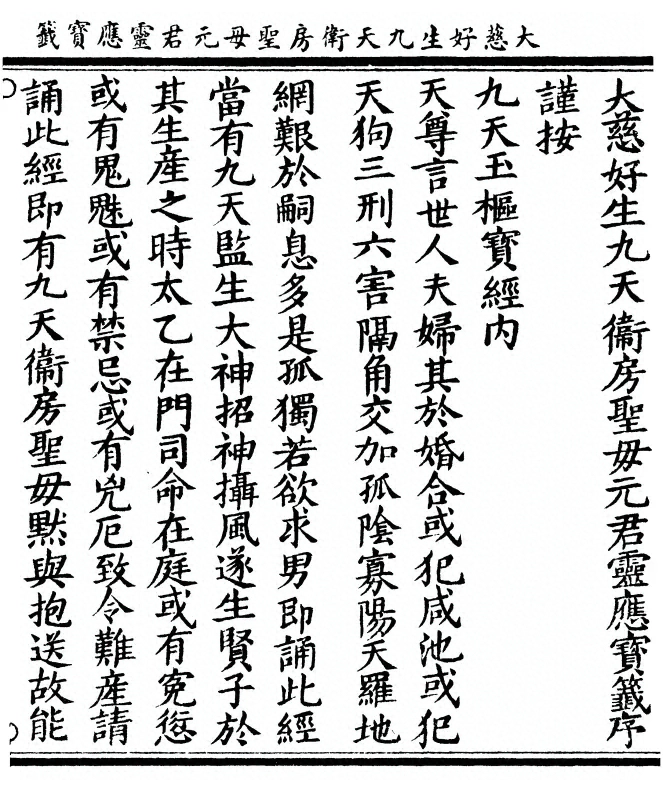 大慈好生九天衛房聖母元君靈應寶籤
大慈好生九天衞房聖毋元君靈應寶籤序
謹按
九天玉樞寶經内
天尊言世人夫婦其於婚合或犯咸池或犯
天狗三刑六害隔角交加孤陰寡陽天羅地
網艱於嗣息多是孤獨若欲求男即誦此經
當有九天監生大神招神攝風遂生賢子於
其生産之時太乙在門司命在庭或有寃愆
或有鬼魅或有禁忌或有兇厄致令難產請
誦此經即有九天衞房聖毋默與抱送故能